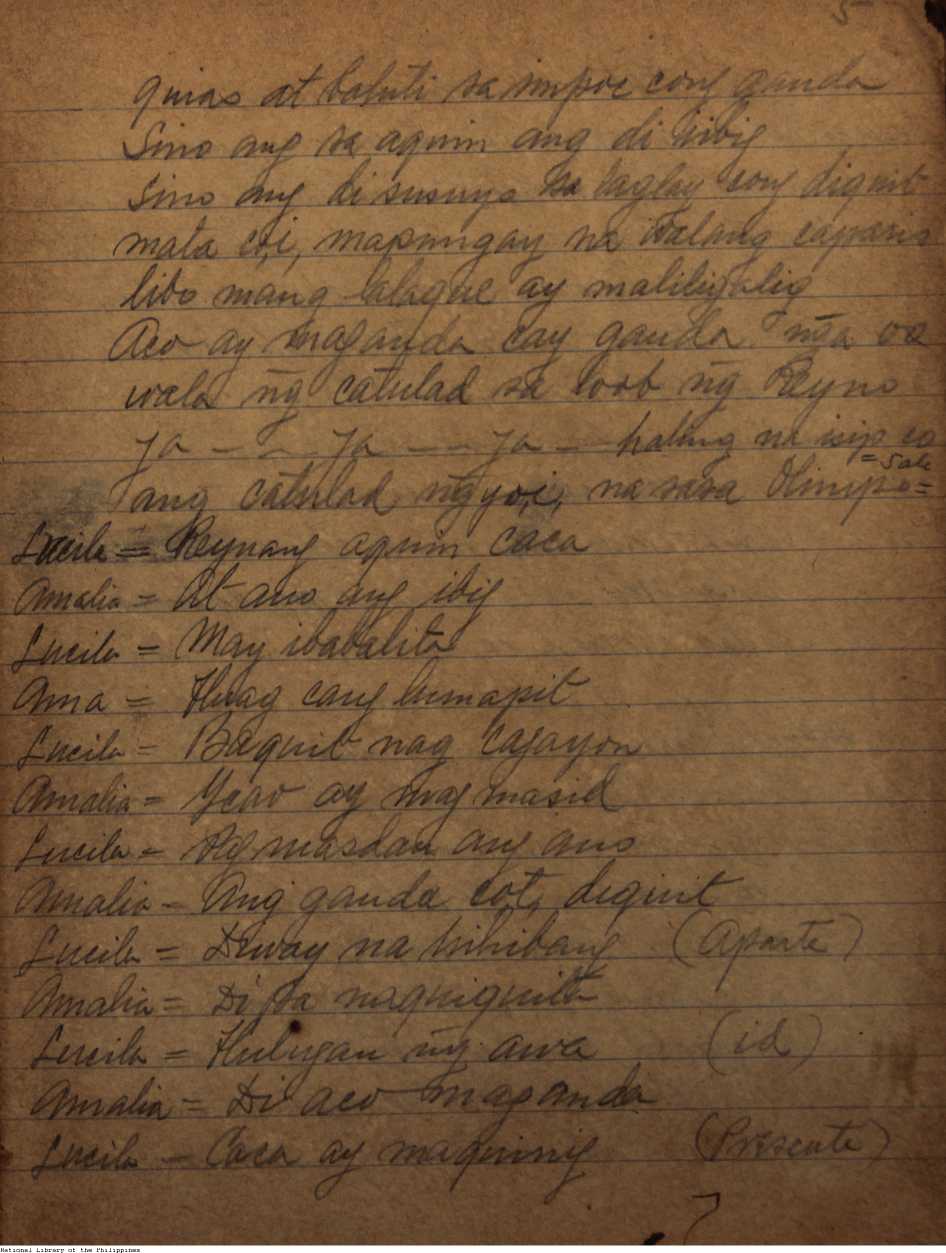 5
quias at baluti sa impoc cong ganda
Sino ang sa aquin ang di iibig
Sino ang di susuyo sa taglay cong diquit
mata co,i, mapungay na walang caparis
libo mang lalaque ay maliligalig
Aco ay maganda cay ganda nga
wala ng catulad sa loob ng Reyno
ja - - - ja - - - ja - - haling na isip co
ang catulad ng yo,i, na sasa Olimpo =
= Sale
Lucila = Reynang aquin caca
Amalia = At ano ang ibig
Lucila = May ibabalita
Ama = Huag cang lumapit
Lucila - Baquit nag cagayon
Amalia = Ycao ay mag masid
Lucila - Pag masdan ang ano
Amalia - Ang ganda co,t, diquit
Lucila = Diway na hihibang (Aparte)
Amalia = Di pa naquiquita
Lucila = Hulugan ng awa (id)
Amalia = Di aco maganda
Lucila - Caca ay maquinig (Presente)
National Library of the Philippines